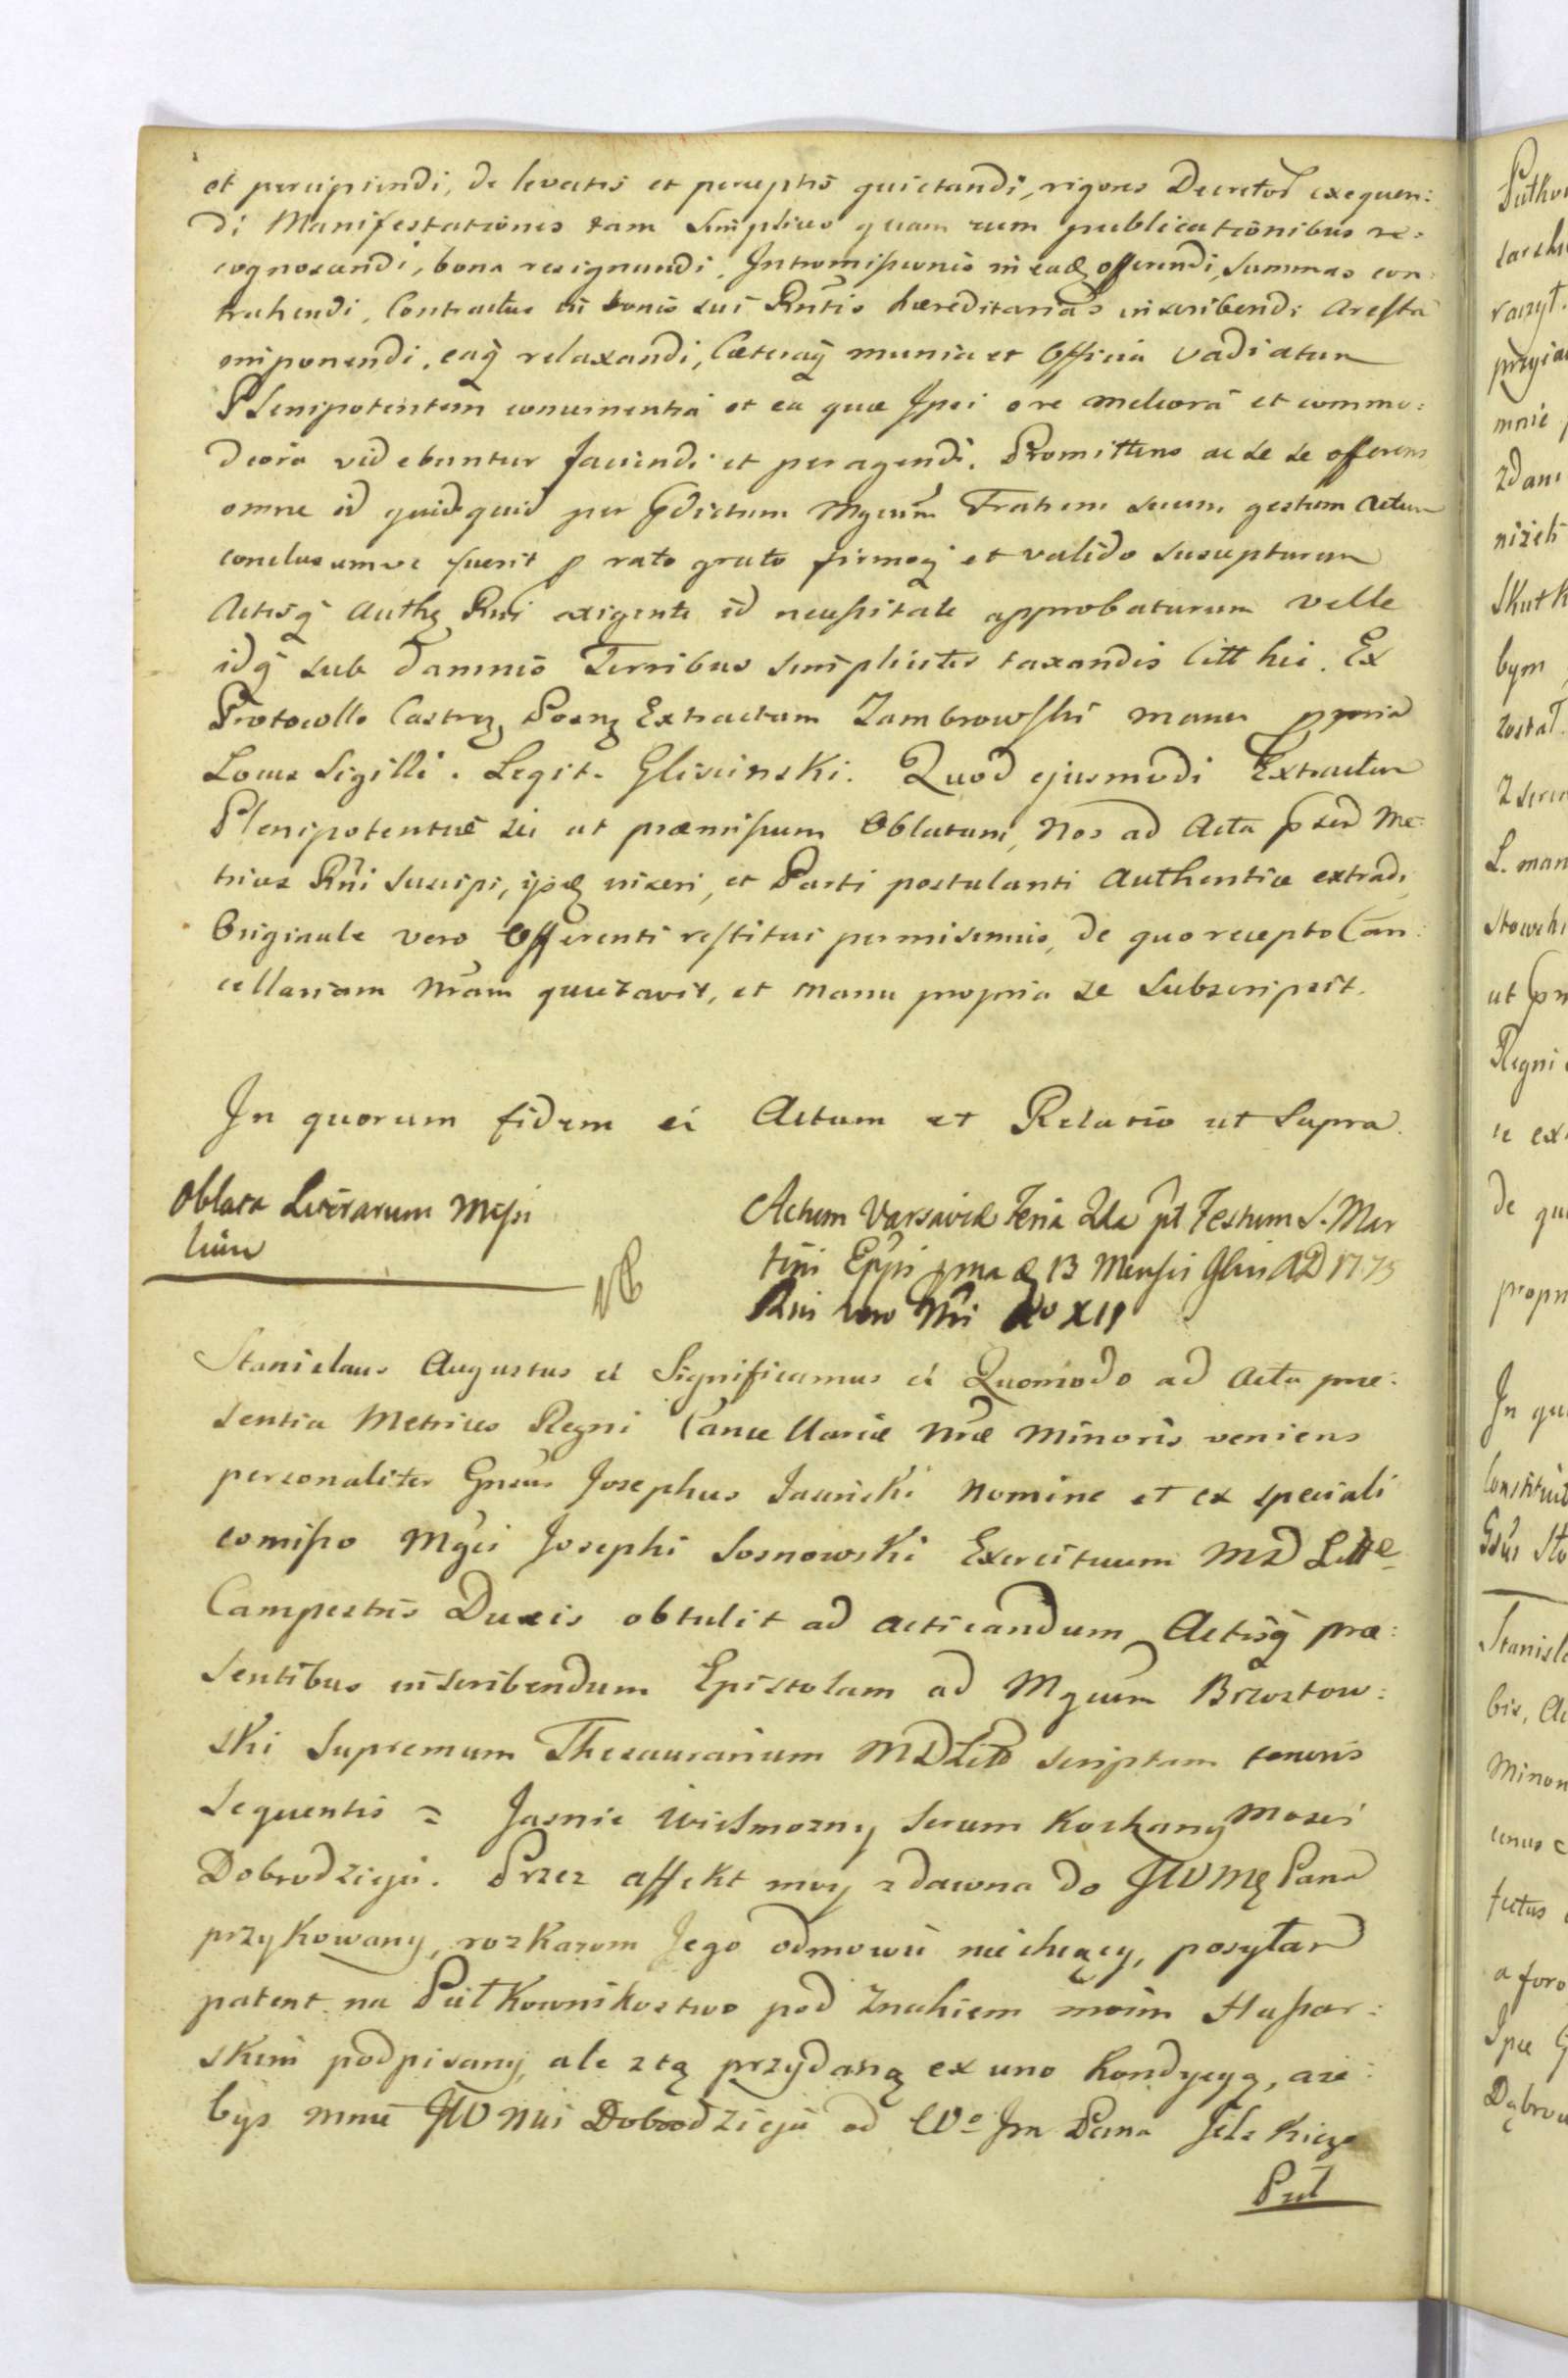 et percipiendi, de levatis et perceptis quietandi, rigores Decretor exequen:
di Manifestationes tam simplices quam cum publicationibus re:
cognoscendi, bona resignandi, Intromissiones in eadē offerendi, summas con:
trahendi, Contractus in bonis sui Rntis hæreditarias inscribendi Aresta
imponendi, eaq̃ relaxandi, Cæteraq̃ munia et Officia Vadiatum
Plenipotentem concernentia et ea quæ Ipsi ore meliora et commo:
diora videbuntur faciendi et peragendi. Promittens ac se se offerens
omne id quidquid per Pdictum Mgcum Fratrem suum gestum actum
conclusumve fuerit p rato grato firmoq̃ et valido suscepturum
Actisq̃ Authę Rni exigente id necessitate approbaturum velle
idq̃ sub damnis Terribus simpliciter taxandis litt hic. Ex
Protocollo Castrę Posnę Extractum Zambrowski manu ppria
Locus Sigilli. Legit. Gliscinski. Quod ejusmodi Extractum
Plenipotentiæ sic ut præmissum Oblatum, Nos ad Acta præs Me:
trices Rni suscipi, ijsdē inseri, et Parti postulanti Authentice extradi
Originale vero Offerenti restitui permisimus, de quo recepto Can:
cellariam Nram quietavit, et manu propria se subscripsit.
In quorum fidem ei Actum et Relatio ut Supra.
Oblata Literarum Missi
lium
NB
Actum Varsaviæ Feria 2da pt Festum S. Mar
tini Eppi 13 Mensis 9bris AD 1775
Rni vero Nri Ao XII
Stanislaus Augustus ei Significamus ei Quomodo ad Acta præ:
sentia Metrices Regni Cancellariæ Nræ Minoris veniens
personaliter Gnsus Josephus Nomine et ex speciali
comisso Mgci Josephi Sosnowski Exercituum MD Litte
Campestris Ducis obtulit ad acticandum Actisq̃ præ:
sentibus inscribendum Epistolam ad Mgcum Brzostow:
ski Supremum Thesaurarium MDLitt scriptam tenoris
sequentis = Jasnie Wielmozny sercem Kochany Mosci
Dobrodzieju. Przez affekt moy zdawna do JWMę Pana
przykowany, rozkazom Jego odmowić niechcący, posyłam
patent na Pułkownikostwo pod Znakiem moim Hussar:
skim podpisany, ale z tą przydaną ex uno kondycyą, aże:
bys mnie JWMci Dobrodzieju od Wo Jm Pana Jelskiego
Puł